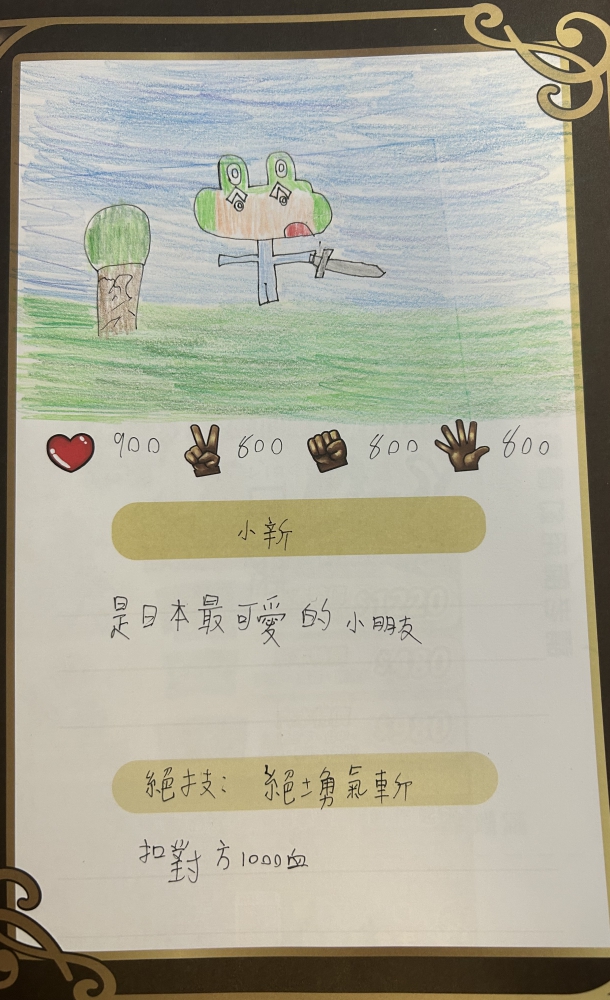 900 800 800 800
小新
是日本最可愛的小朋友
絕技： 絕 勇氣斬
扣對方1000血